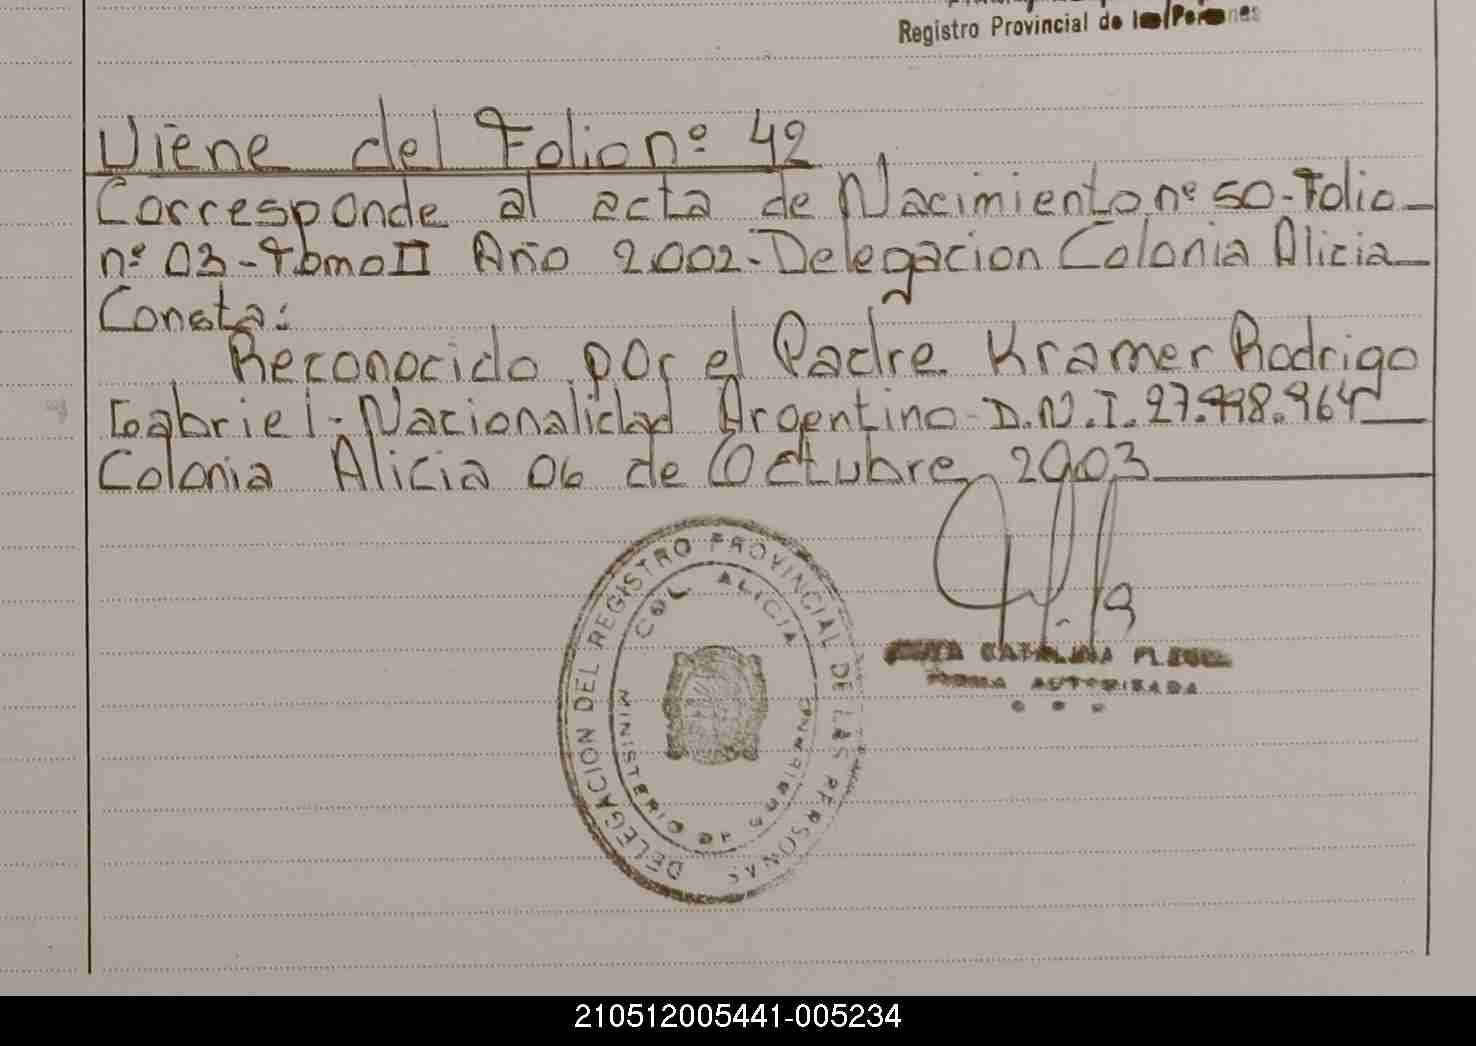 Registro Provincial de las Personas
Viene del Folio nº 42
Corresponde al acta de Nacimiento nº 50-Folio
nº 03-Tomo II Año 2.002-Delegacion Colonia Alicia
Consta:
Reconocido por el Padre Kramer Rodrigo
Gabriel-Nacionalidad Argentino-D.N.I.27.998.964
Colonia Alicia 06 de Octubre 2003
DELEGACION DEL REGISTRO PROVINCIAL DE LAS PERSONAS
COL ALICIA
MINISTERIO DE GOBIERNO
CATALINA
FIRMA AUTORIZADA
210512005441-005234